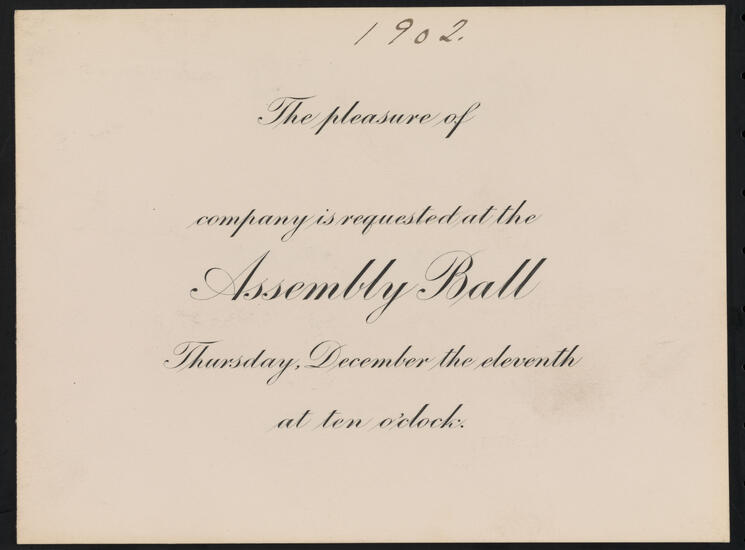 1902.
The pleasure of
company is requested at the
Assembly Ball
Thursday, December the eleventh
at ten o'clock.